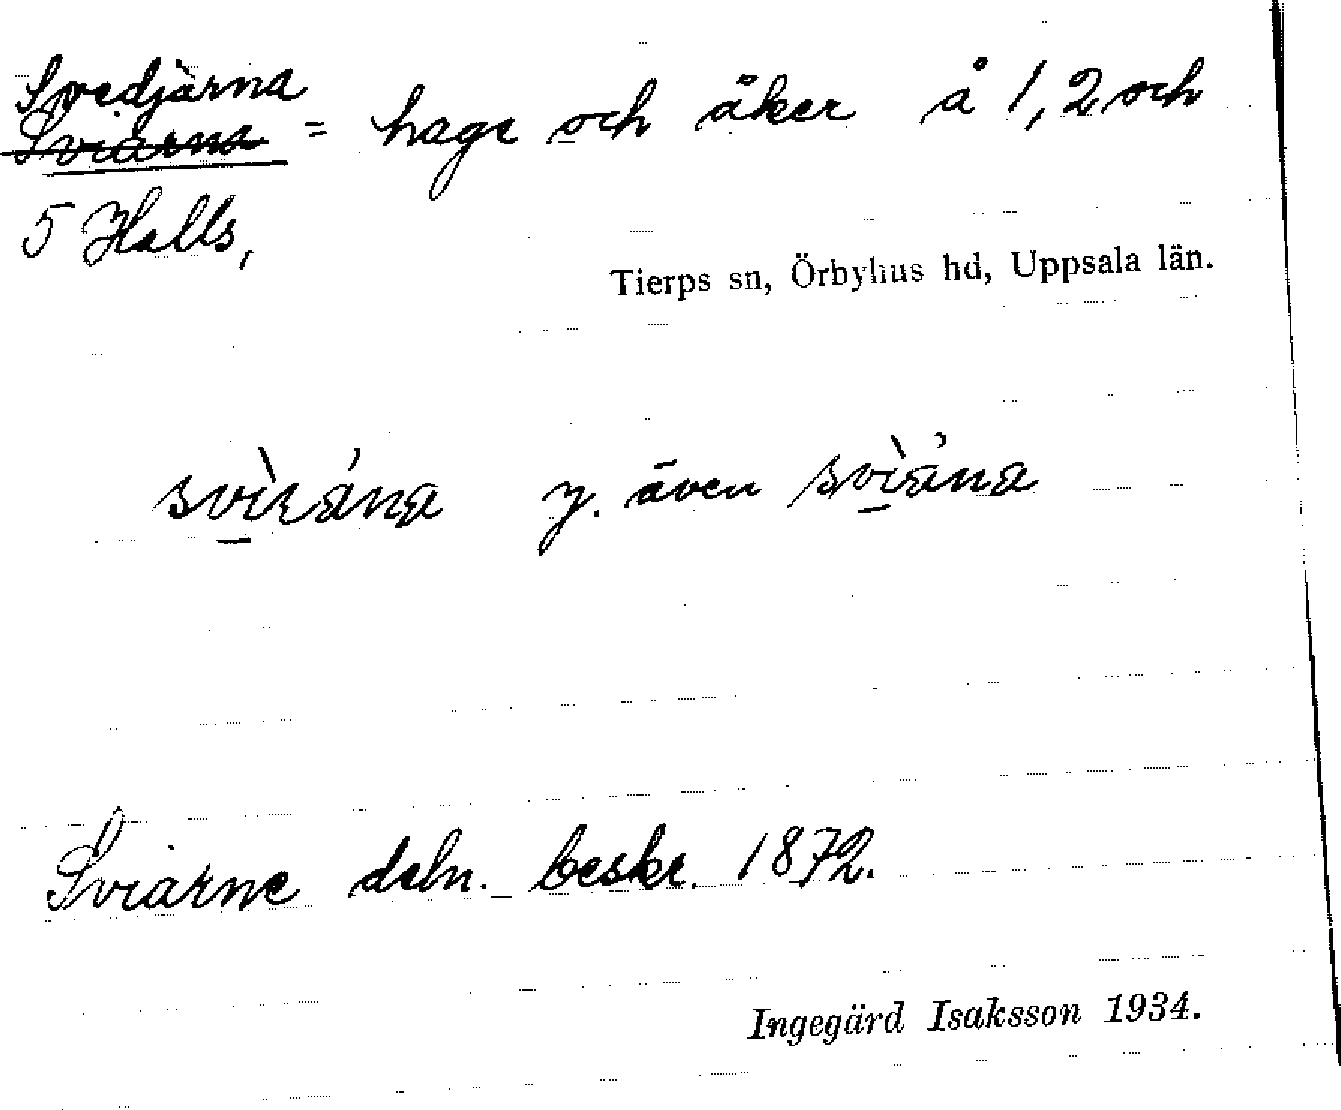 Svedjärna
Sviärna = hage och åker å 1, 2 och
5 Halls,
Tierps sn, Örbyhus hd, Uppsala län.
y. även
Sviärne deln. beskr. 1872.
Ingegärd Isaksson 1934.